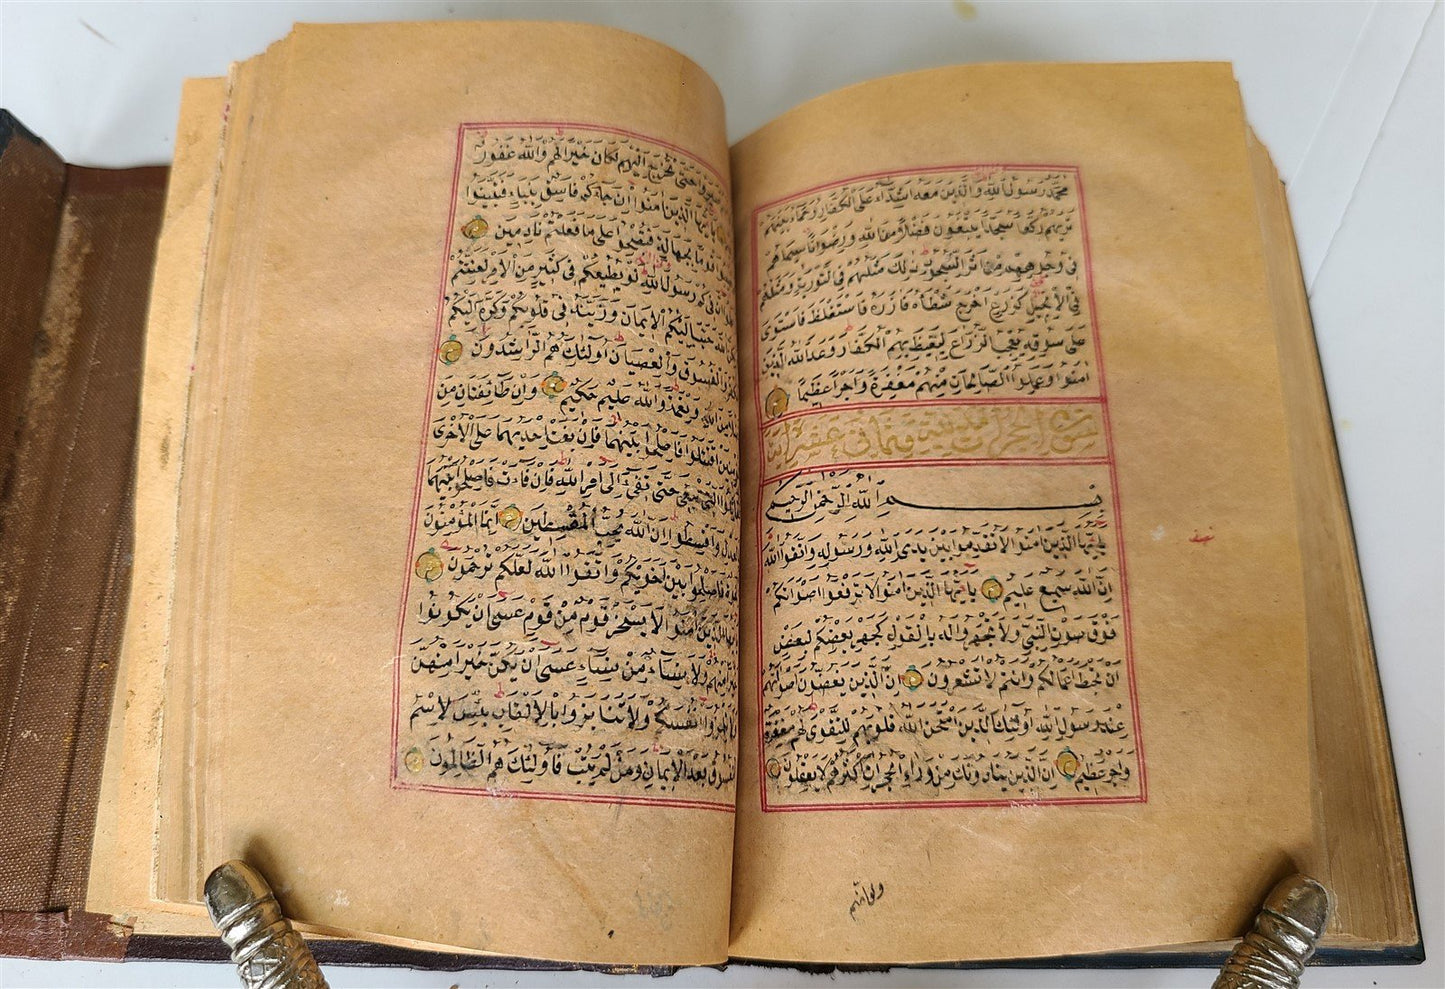 مُحَمَّدٌ رَسُولُ اللهِ وَالَّذِينَ مَعَهُ اَشِدَّاءُ عَلَى الْكُفَّارِ رُحَمَاءُ بَيْنَهُمْ
تَرٰيهُمْ رُكَّعًا سُجَّدًا يَبْتَغُونَ فَضْلًا مِنَ اللهِ وَرِضْوَانًا سِيمَاهُمْ
فِي وُجُوهِهِمْ مِنْ اَثَرِ السُّجُودِ ذٰلِكَ مَثَلُهُمْ فِي التَّوْرٰيةِ وَمَثَلُهُمْ
فِي الْاِنْجِيلِ كَزَرْعٍ اَخْرَجَ شَطْأَهُ فَاٰزَرَهُ فَاسْتَغْلَظَ فَاسْتَوٰى
عَلٰى سُوقِهِ يُعْجِبُ الزُّرَّاعَ لِيَغِيظَ بِهِمُ الْكُفَّارَ وَعَدَ اللهُ الَّذِينَ
اٰمَنُوا وَعَمِلُوا الصَّالِحَاتِ مِنْهُمْ مَغْفِرَةً وَاَجْرًا عَظِيمًا
سورة الحجرات مدنية وثماني عشر اية
بِسْمِ اللهِ الرَّحْمٰنِ الرَّحِيمِ
يَاۤ اَيُّهَا الَّذِينَ اٰمَنُوا لَا تُقَدِّمُوا بَيْنَ يَدَيِ اللهِ وَرَسُولِهِ وَاتَّقُوا اللهَ
اِنَّ اللهَ سَمِيعٌ عَلِيمٌ يَاۤ اَيُّهَا الَّذِينَ اٰمَنُوا لَا تَرْفَعُوا اَصْوَاتَكُمْ
فَوْقَ صَوْتِ النَّبِيِّ وَلَا تَجْهَرُوا لَهُ بِالْقَوْلِ كَجَهْرِ بَعْضِكُمْ لِبَعْضٍ
اَنْ تَحْبَطَ اَعْمَالُكُمْ وَاَنْتُمْ لَا تَشْعُرُونَ اِنَّ الَّذِينَ يَغُضُّونَ اَصْوَاتَهُمْ
عِنْدَ رَسُولِ اللهِ اُولٰئِكَ الَّذِينَ امْتَحَنَ اللهُ قُلُوبَهُمْ لِلتَّقْوٰى لَهُمْ مَغْفِرَةٌ
وَاَجْرٌ عَظِيمٌ اِنَّ الَّذِينَ يُنَادُونَكَ مِنْ وَرَاءِ الْحُجُرَاتِ اَكْثَرُهُمْ لَا يَعْقِلُونَ
ولو انهم
حَتّٰى تَخْرُجَ اِلَيْهِمْ لَكَانَ خَيْرًا لَهُمْ وَاللهُ غَفُورٌ
اَيُّهَا الَّذِينَ اٰمَنُوا اِنْ جَاءَكُمْ فَاسِقٌ بِنَبَاٍ فَتَبَيَّنُوا
قَوْمًا بِجَهَالَةٍ فَتُصْبِحُوا عَلٰى مَا فَعَلْتُمْ نَادِمِينَ
اَنَّ فِيكُمْ رَسُولَ اللهِ لَوْ يُطِيعُكُمْ فِي كَثِيرٍ مِنَ الْاَمْرِ لَعَنِتُّمْ
اللهَ حَبَّبَ اِلَيْكُمُ الْاِيمَانَ وَزَيَّنَهُ فِي قُلُوبِكُمْ وَكَرَّهَ اِلَيْكُمُ
وَالْفُسُوقَ وَالْعِصْيَانَ اُولٰئِكَ هُمُ الرَّاشِدُونَ
مِنَ اللهِ وَنِعْمَةً وَاللهُ عَلِيمٌ حَكِيمٌ وَاِنْ طَائِفَتَانِ مِنَ
اقْتَتَلُوا فَاَصْلِحُوا بَيْنَهُمَا فَاِنْ بَغَتْ اِحْدٰيهُمَا عَلَى الْاُخْرٰى
الَّتِي تَبْغِي حَتّٰى تَفِيءَ اِلٰى اَمْرِ اللهِ فَاِنْ فَاءَتْ فَاَصْلِحُوا بَيْنَهُمَا
وَاَقْسِطُوا اِنَّ اللهَ يُحِبُّ الْمُقْسِطِينَ اِنَّمَا الْمُؤْمِنُونَ
فَاَصْلِحُوا بَيْنَ اَخَوَيْكُمْ وَاتَّقُوا اللهَ لَعَلَّكُمْ تُرْحَمُونَ
الَّذِينَ اٰمَنُوا لَا يَسْخَرْ قَوْمٌ مِنْ قَوْمٍ عَسٰى اَنْ يَكُونُوا
مِنْهُمْ وَلَا نِسَاءٌ مِنْ نِسَاءٍ عَسٰى اَنْ يَكُنَّ خَيْرًا مِنْهُنَّ
اَنْفُسَكُمْ وَلَا تَنَابَزُوا بِالْاَلْقَابِ بِئْسَ الِاسْمُ
الْفُسُوقُ بَعْدَ الْاِيمَانِ وَمَنْ لَمْ يَتُبْ فَاُولٰئِكَ هُمُ الظَّالِمُونَ